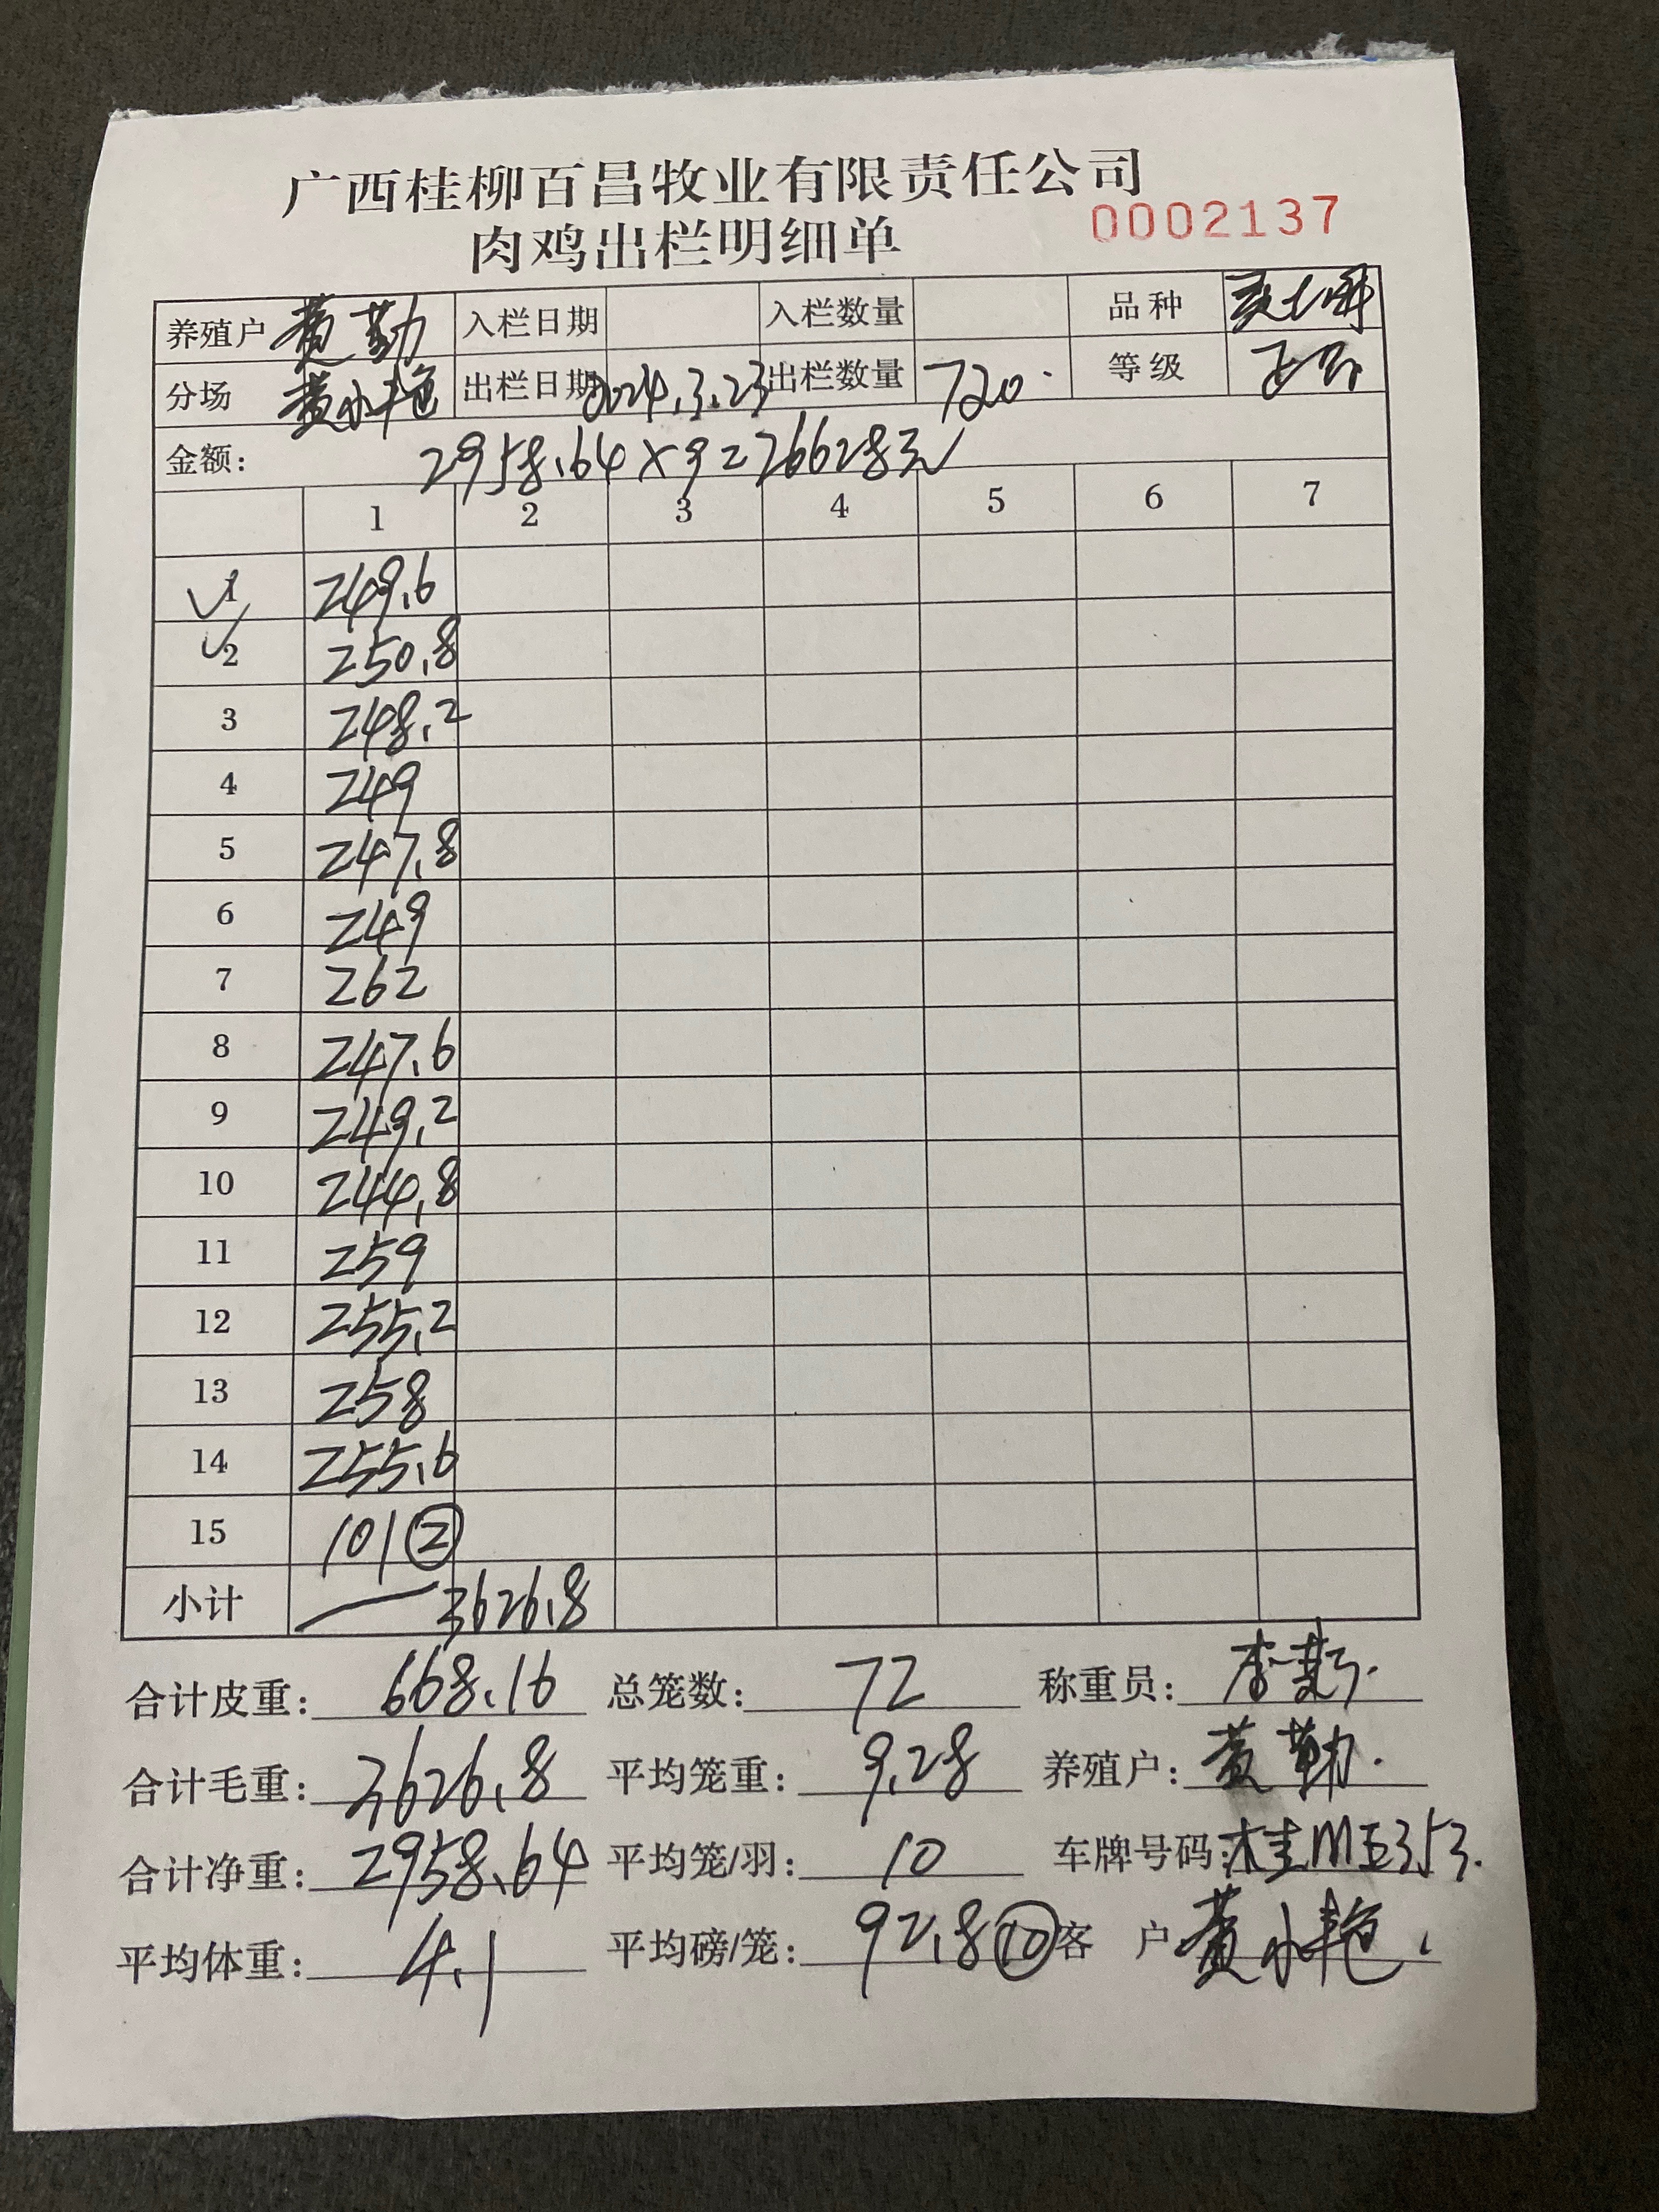 广西桂柳百昌牧业有限责任公司
肉鸡出栏明细单 0002137
养殖户 黄勤 入栏日期 入栏数量 品种
分场 黄小艳 出栏日期 2024.3.23 出栏数量 720. 等级 正品
金额: 2958.64×9=26628元
1 2 3 4 5 6 7
1 249.6
2 250.8
3 248.2
4 249
5 247.8
6 249
7 262
8 247.6
9 249.2
10 244.8
11 259
12 255.2
13 258
14 255.6
15 101②
小计 3626.8
合计皮重: 668.16 总笼数: 72 称重员:
合计毛重: 3626.8 平均笼重: 9.28 养殖户: 黄勤.
合计净重: 2958.64 平均笼/羽: 10 车牌号码: 桂ME353.
平均体重: 4.1 平均磅/笼: 92.8⑩ 客 户: 黄小艳.